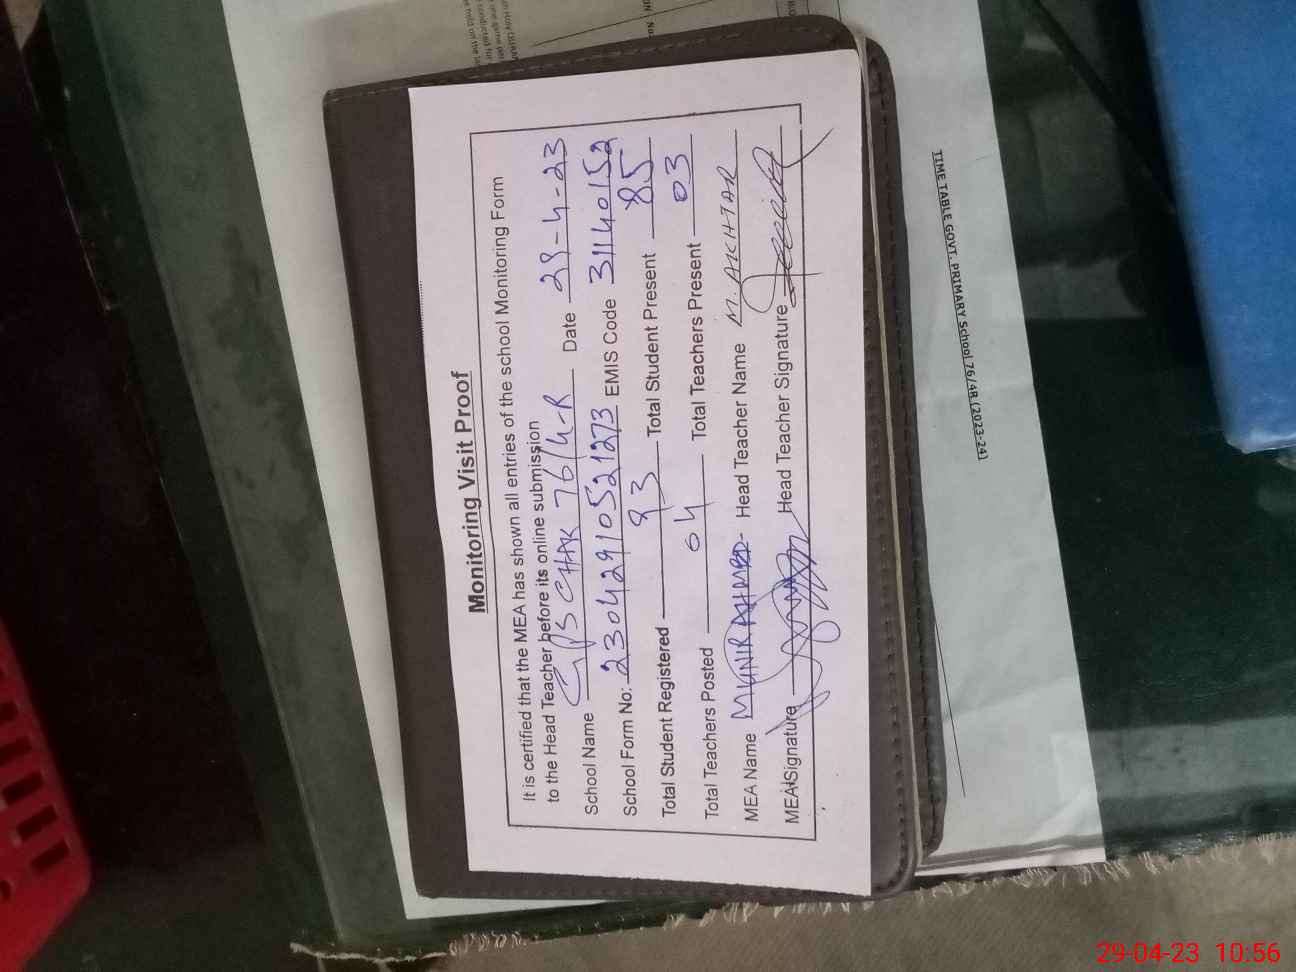 Monitoring Visit Proof
It is certified that the MEA has shown all entries of the school Monitoring Form
to the Head Teacher before its online submission
School Name GPS CHAK 76/4-R Date 29-4-23
School Form No: 23042910521273 EMIS Code 31140152
Total Student Registered 93 Total Student Present 85
Total Teachers Posted 04 Total Teachers Present 03
MEA Name MUNIR AHMED Head Teacher Name M. AKHTAR
MEA Signature Head Teacher Signature
TIME TABLE GOVT. PRIMARY School 76/4R (2023-24)
29-04-23 10:56